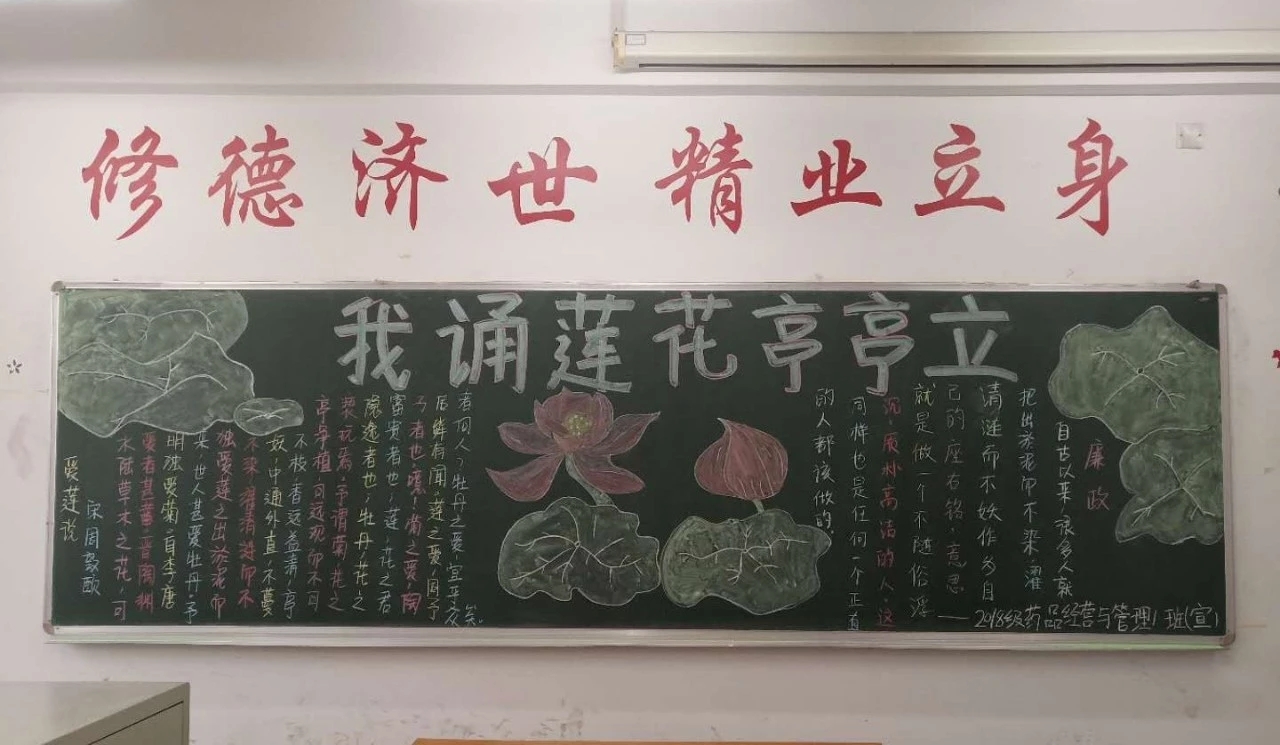 修德济世精业立身
我诵莲花亭亭立
爱莲说
宋周敦颐
水陆草木之花，可
爱者甚蕃，晋陶渊
明独爱菊，自李唐
来，世人甚爱牡丹，予
独爱莲之出淤泥而
不染，濯清涟而不
妖，中通外直，不蔓
不枝，香远益清，亭
亭净植，可远观而不可
亵玩焉，予谓菊，花之
隐逸者也，牡丹，花之
富贵者也，莲，花之君
子者也，噫，菊之爱，陶
后鲜有闻，莲之爱，同予
者何人？牡丹之爱，宜乎众矣
廉政
自古以来，很多人就
把出淤泥而不染，濯
清涟而不妖作为自
己的座右铭，意思
就是做一个不随俗浮
沉，质朴高洁的人，这
同样也是任何一个正直
的人都该做的。
——2018级药品经营与管理1班(宣)